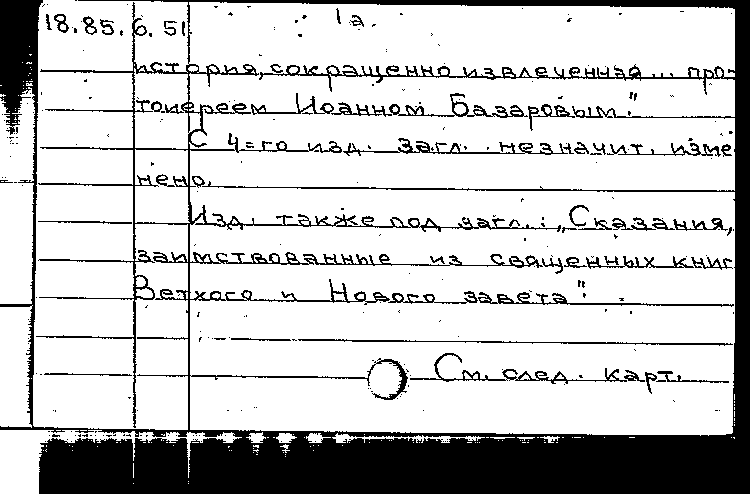 18.85.6.51. 1а.
история, сокращенно извлеченная... про-
тоиереем Иоанном Базаровым."
С 4=го изд. загл. незначит. изме
нено.
Изд. также под загл.: „Сказания,
заимствованные из священных книг
Ветхого и Нового завета".
См. след. карт.